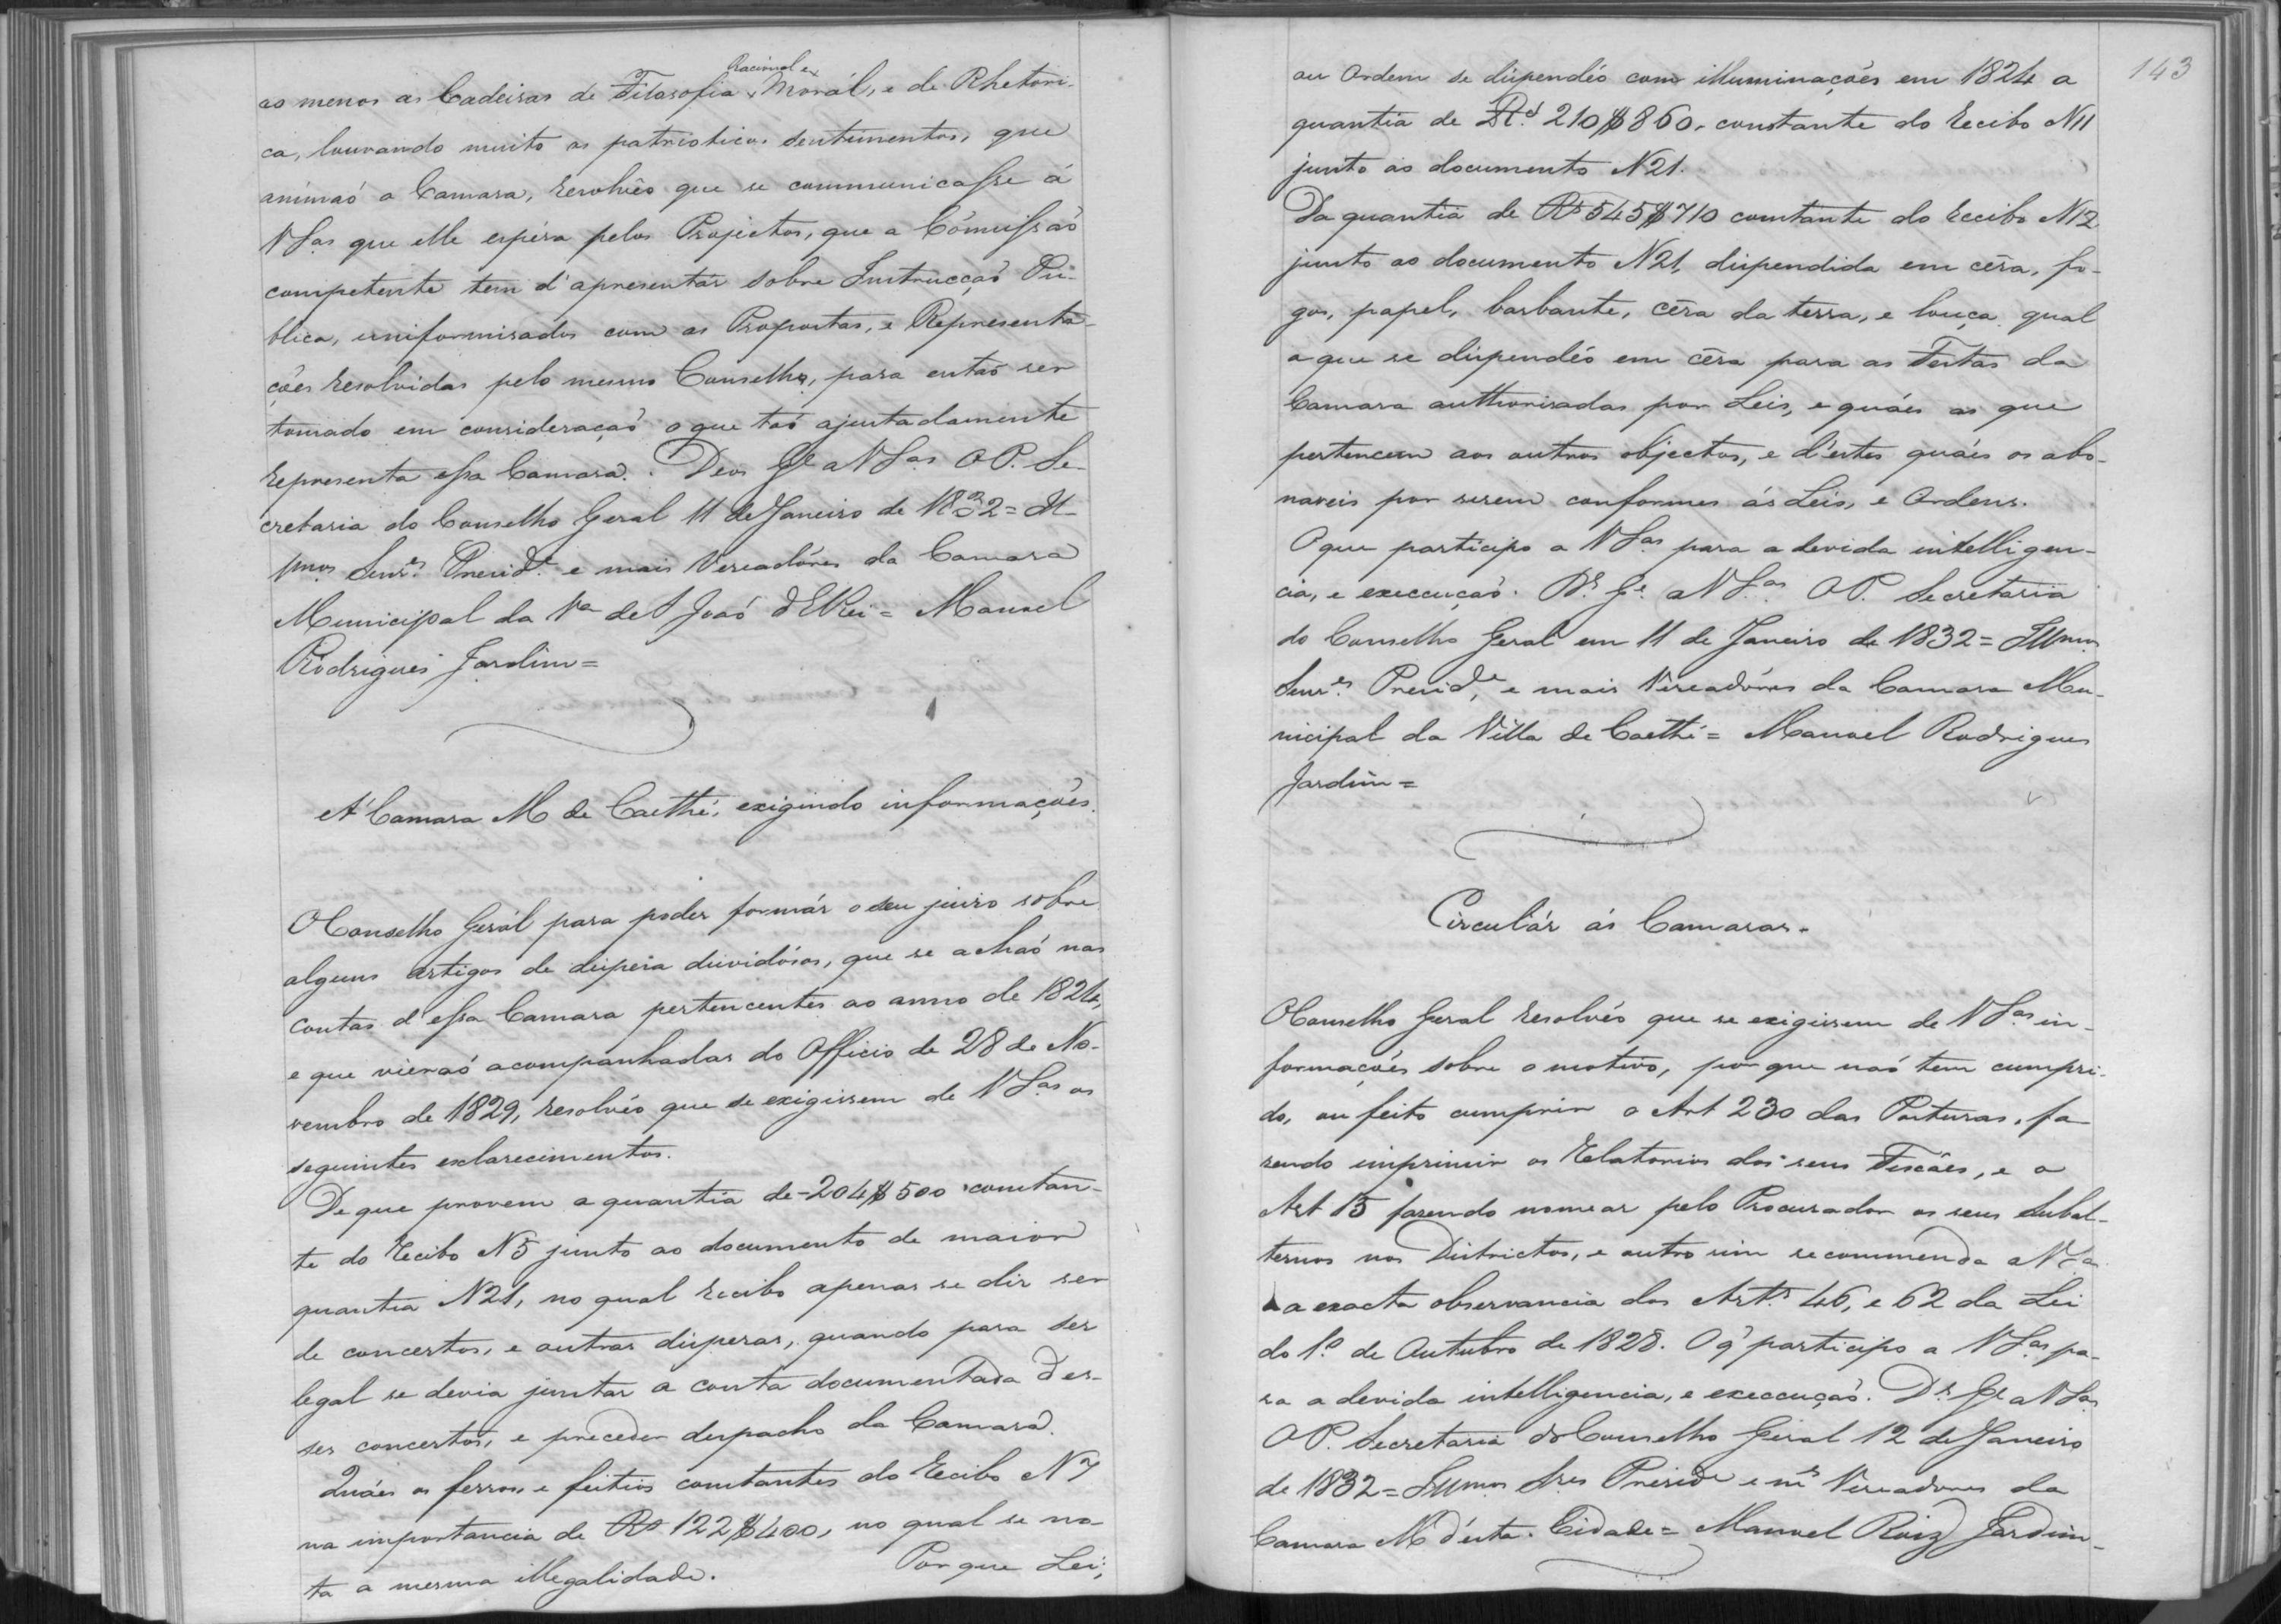 ao menos as Cadeiras de Filosofia Racional e Morál, e de Rhetori-
ca, louvando muito os patrioticos sentimentos, que
animaõ a Camara, resolvêo que se communicasse á
VSas que elle espéra pelos Projectos, que a Cõmissaõ
competente tem d'apresentar sobre Instrucçaõ Pu-
blica, uniformisados com as Propostas, e Representa-
ções resolvidas pelo mesmo Conselho, para entaõ ser
tomado em consideraçaõ o que taõ ajustadamente
representa essa Camara. Deos Ge a VSas O P. Se-
cretaria do Conselho Geral 11 de Janeiro de 1832 = Il-
lmos Senres Presidte e mais Vereadóres da Camara
Municipal da Va de S Joaõ d'ElRei = Manoel
Rodrigues Jardim =
A' Camara M de Caethé, exigindo informações.
O Conselho Gerál para poder formár o seu juizo sobre
alguns artigos de despeza duvidósos, que se achaõ nas
contas d'essa Camara pertencentes ao anno de 1824,
e que vieraõ acompanhadas do Officio de 28 de No-
vembro de 1829, resolvéo que se exigissem de VSas os
seguintes esclarecimentos.
De que provem a quantia de - 204$500 constan-
te do recibo N 5 junto ao documento de maior
quantia N 21, no qual recibo apenas se diz ser
de concertos, e outras dispezas, quando para ser
legal se devia juntar a conta documentada d'es-
ses concertos, e preceder despacho da Camara.
Quáes os ferros, e feitios constantes do Recibo N 7
na importancia de Rs 122$400, no qual se no-
ta a mesma illegalidade. Por que Lei,
143
ou Ordem se dispendéo com illuminações em 1824 a
quantia de Rs 210$860, constante do Recibo N 11
junto ao documento N 21.
Da quantia de Rs 545$710 constante do recibo N 12
junto ao documento N 21, dispendida em cêra, fo-
gos, papel, barbante, cêra da terra, e louça qual
a que se dispendéo em cêra para as Festas da
Camara authorisadas por Leis, e quáes as que
pertencem aos outros objectos, e d'estes quáes os abo-
naveis por serem conformes ás Leis, e Ordens.
O que participo a VSas para a devida intelligen-
cia, e execcuçaõ. Ds Ge a VSas O P. Secretaria
do Conselho Geral em 11 de Janeiro de 1832 = Illmos
Senres Preside, e mais Vereadóres da Camara Mu-
nicipal da Villa de Caethé = Manoel Rodrigues
Jardim =
Circulár ás Camaras.
O Conselho Geral resolvéo que se exigissem de VSas in-
formações sobre o motivo, por que naõ tem cumpri-
do, ou feito cumprir o Art 230 das Posturas, fa-
zendo imprimir os Relatorios dos seus Fiscáes, e o
Art 15 fazendo nomear pelo Procurador os seus Subal-
ternos nos Districtos, e outro sim recommenda a VSas
a exacta observancia dos Arts 46, e 62 da Lei
do 1o de Outubro de 1828. O q' participo a VSas pa-
ra a devida intelligencia, e execcuçaõ. Ds Ge a VSas
O P. Secretaria do Conselho Geral 12 de Janeiro
de 1832 = Illmos Sres Preside e ms Vereadores da
Camara M d'esta Cidade = Manoel Roiz Jardim -